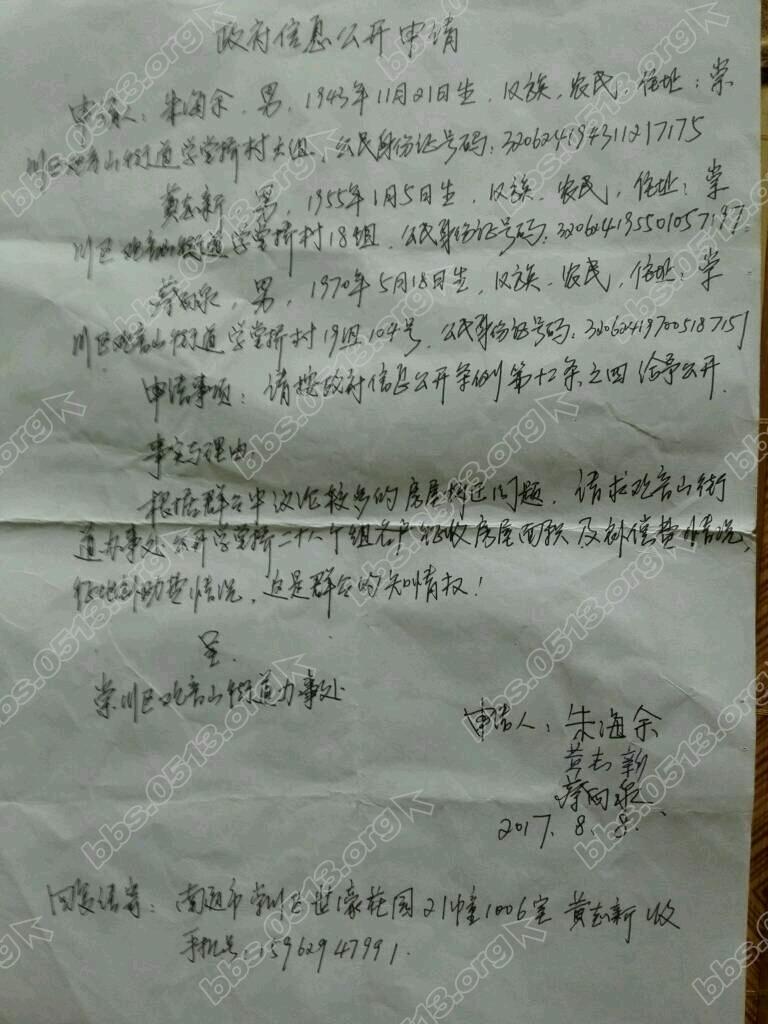 政府信息公开申请
申请人：朱海余，男，1943年11月21日生，汉族，农民，住址：崇
川区观音山街道学堂桥村六组，公民身份证号码：320624194311217175
黄志新，男，1955年1月5日生，汉族，农民，住址：崇
川区观音山街道学堂桥村18组，公民身份证号码：320624195501057197
蔡向泉，男，1970年5月18日生，汉族，农民，住址：崇
川区观音山街道学堂桥村19组104号，公民身份证号码：320624197005187151
申请事项：请按政府信息公开条例第十二条之四给予公开
事实与理由：
根据群众中议论较多的房屋拆迁问题，请求观音山街
道办事处公开学堂桥二十八个组各户征收房屋面积及补偿费用情况，
征地补助费情况，这是群众的知情权！
呈
崇川区观音山街道办事处
申请人：朱海余
黄志新
蔡向泉
2017.8.8.
回复请寄：南通市崇川区世豪花园21幢1006室 黄志新 收
手机号：15962947991.
bbs.0513.org